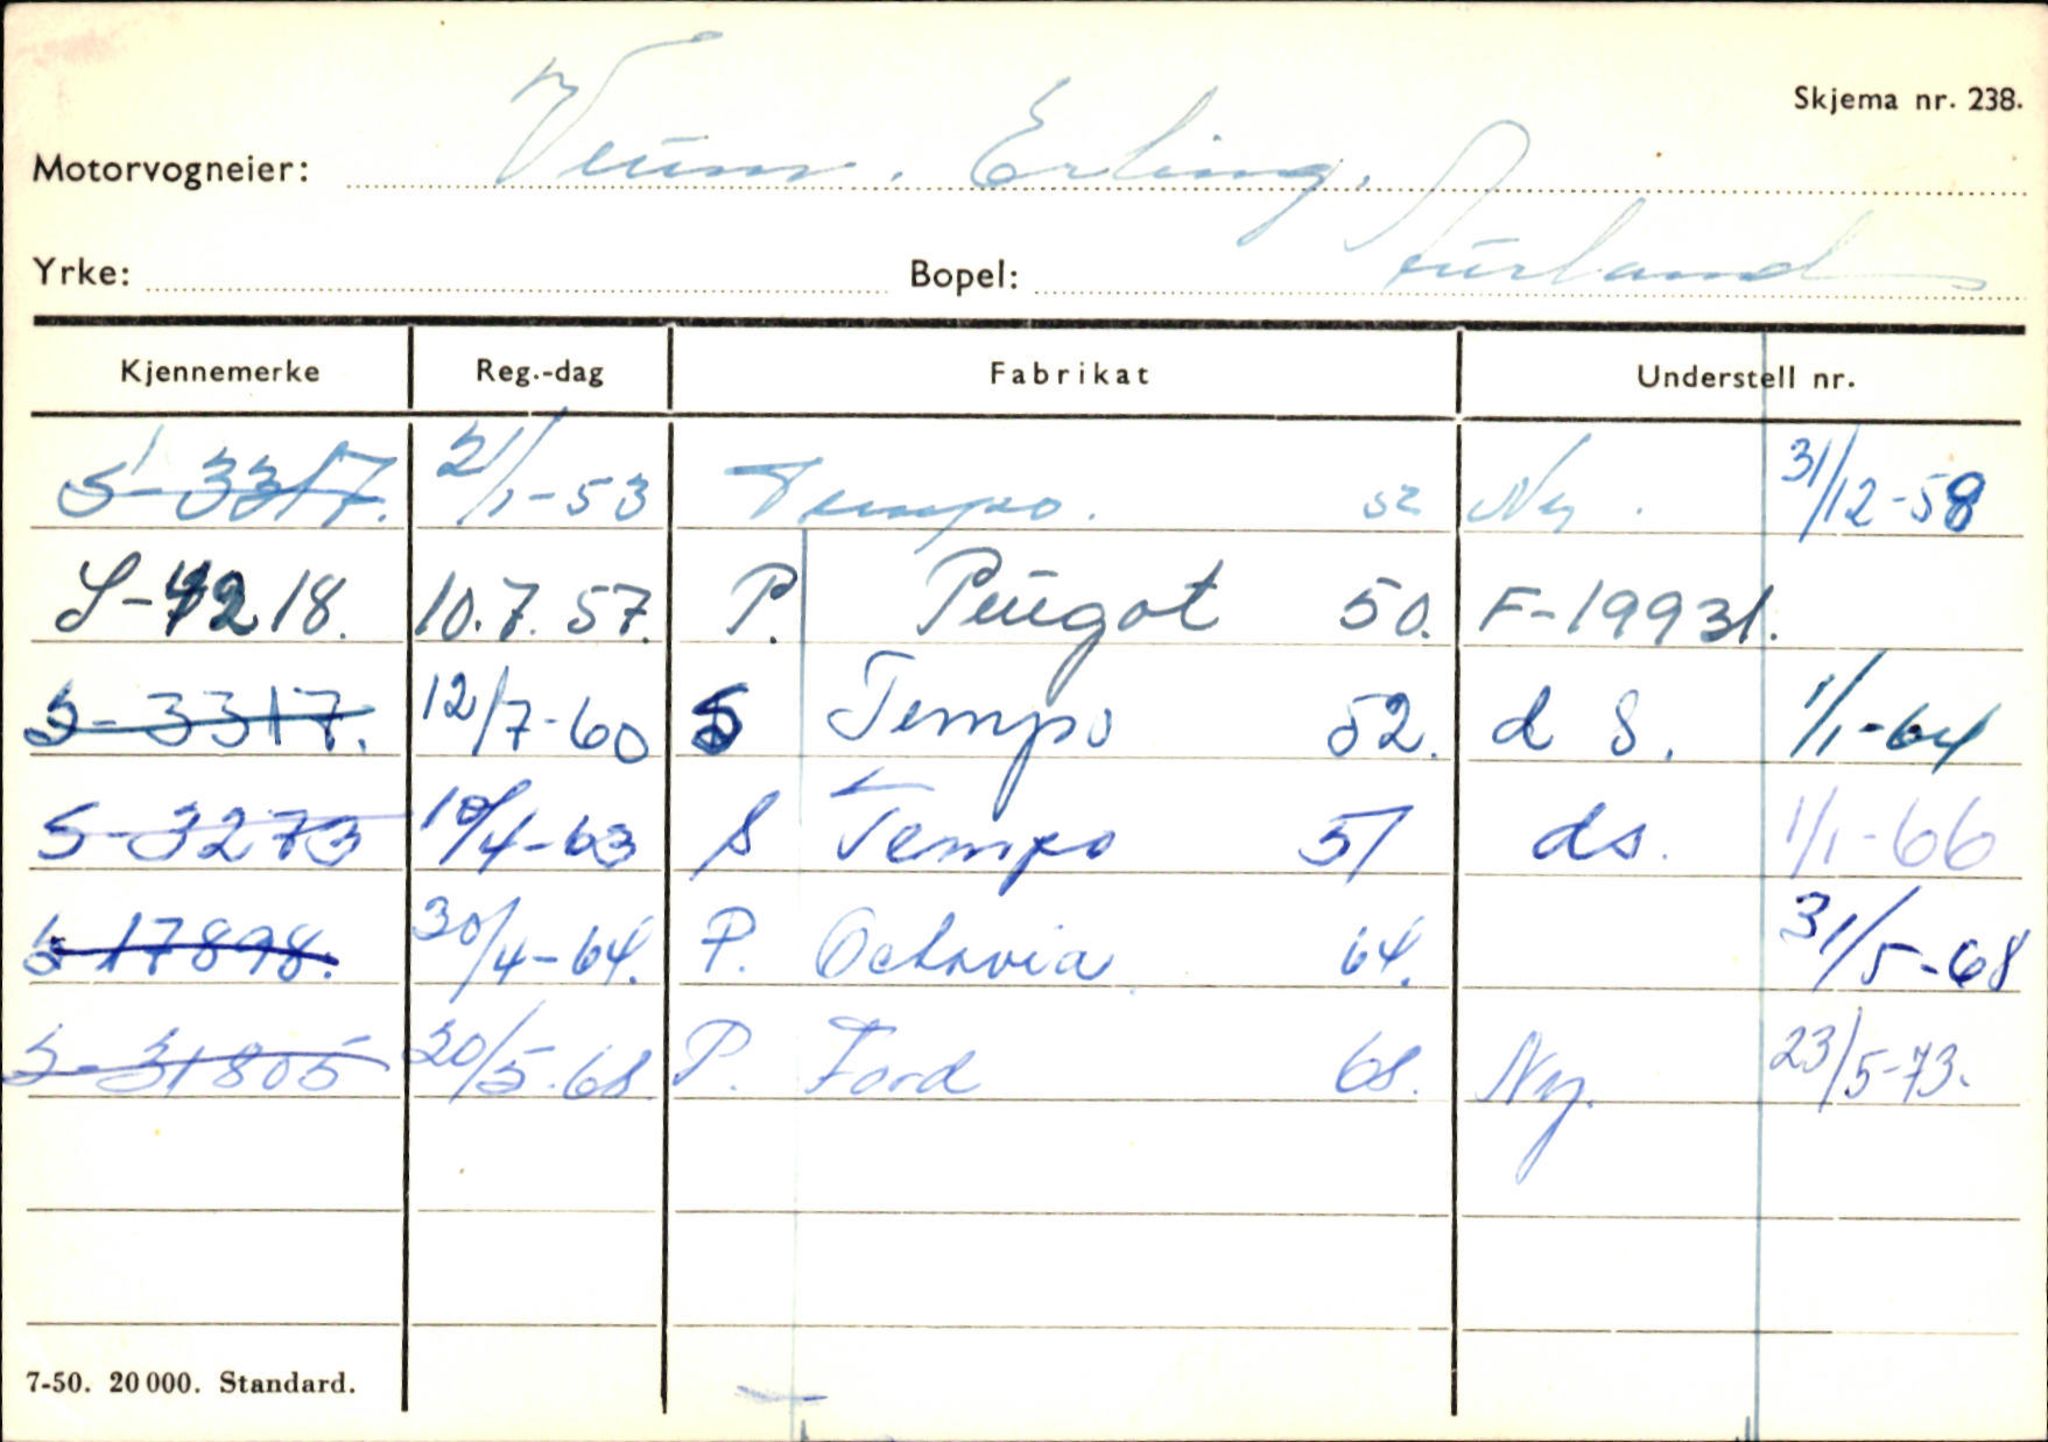 Skjema nr. 238.
Motorvogneier: Veum. Erling.
Yrke: Bopel: Aurland
Kjennemerke Reg.-dag Fabrikat Understell nr.
S-3317. 2/1-53 Tempo. 52 Ny. 31/12-58
S-4218. 10.7.57. P. Peugot 50. F-19931.
S-3317. 12/7-60 S Tempo 52. d S. 1/1-64
S-3273 10/4-63 S Tempo 51 ds. 1/1-66
S-17898. 30/4-64. P. Octavia 64. 31/5-68
S-31805 20/5-68. P. Ford 68. Ny. 23/5-73.
7-50. 20 000. Standard.